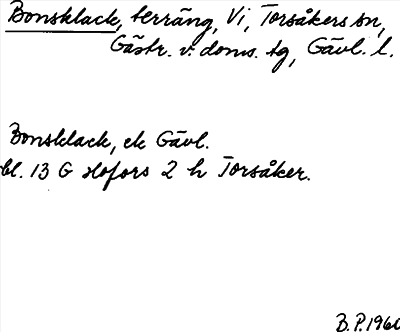 Bonsklack, terräng, Vi, Torsåkers sn,
Gästr. v. doms. tg, Gävl. l.
Bonsklack, ek Gävl.
bl. 13 G Hofors 2 h Torsåker.
B.P. 1960